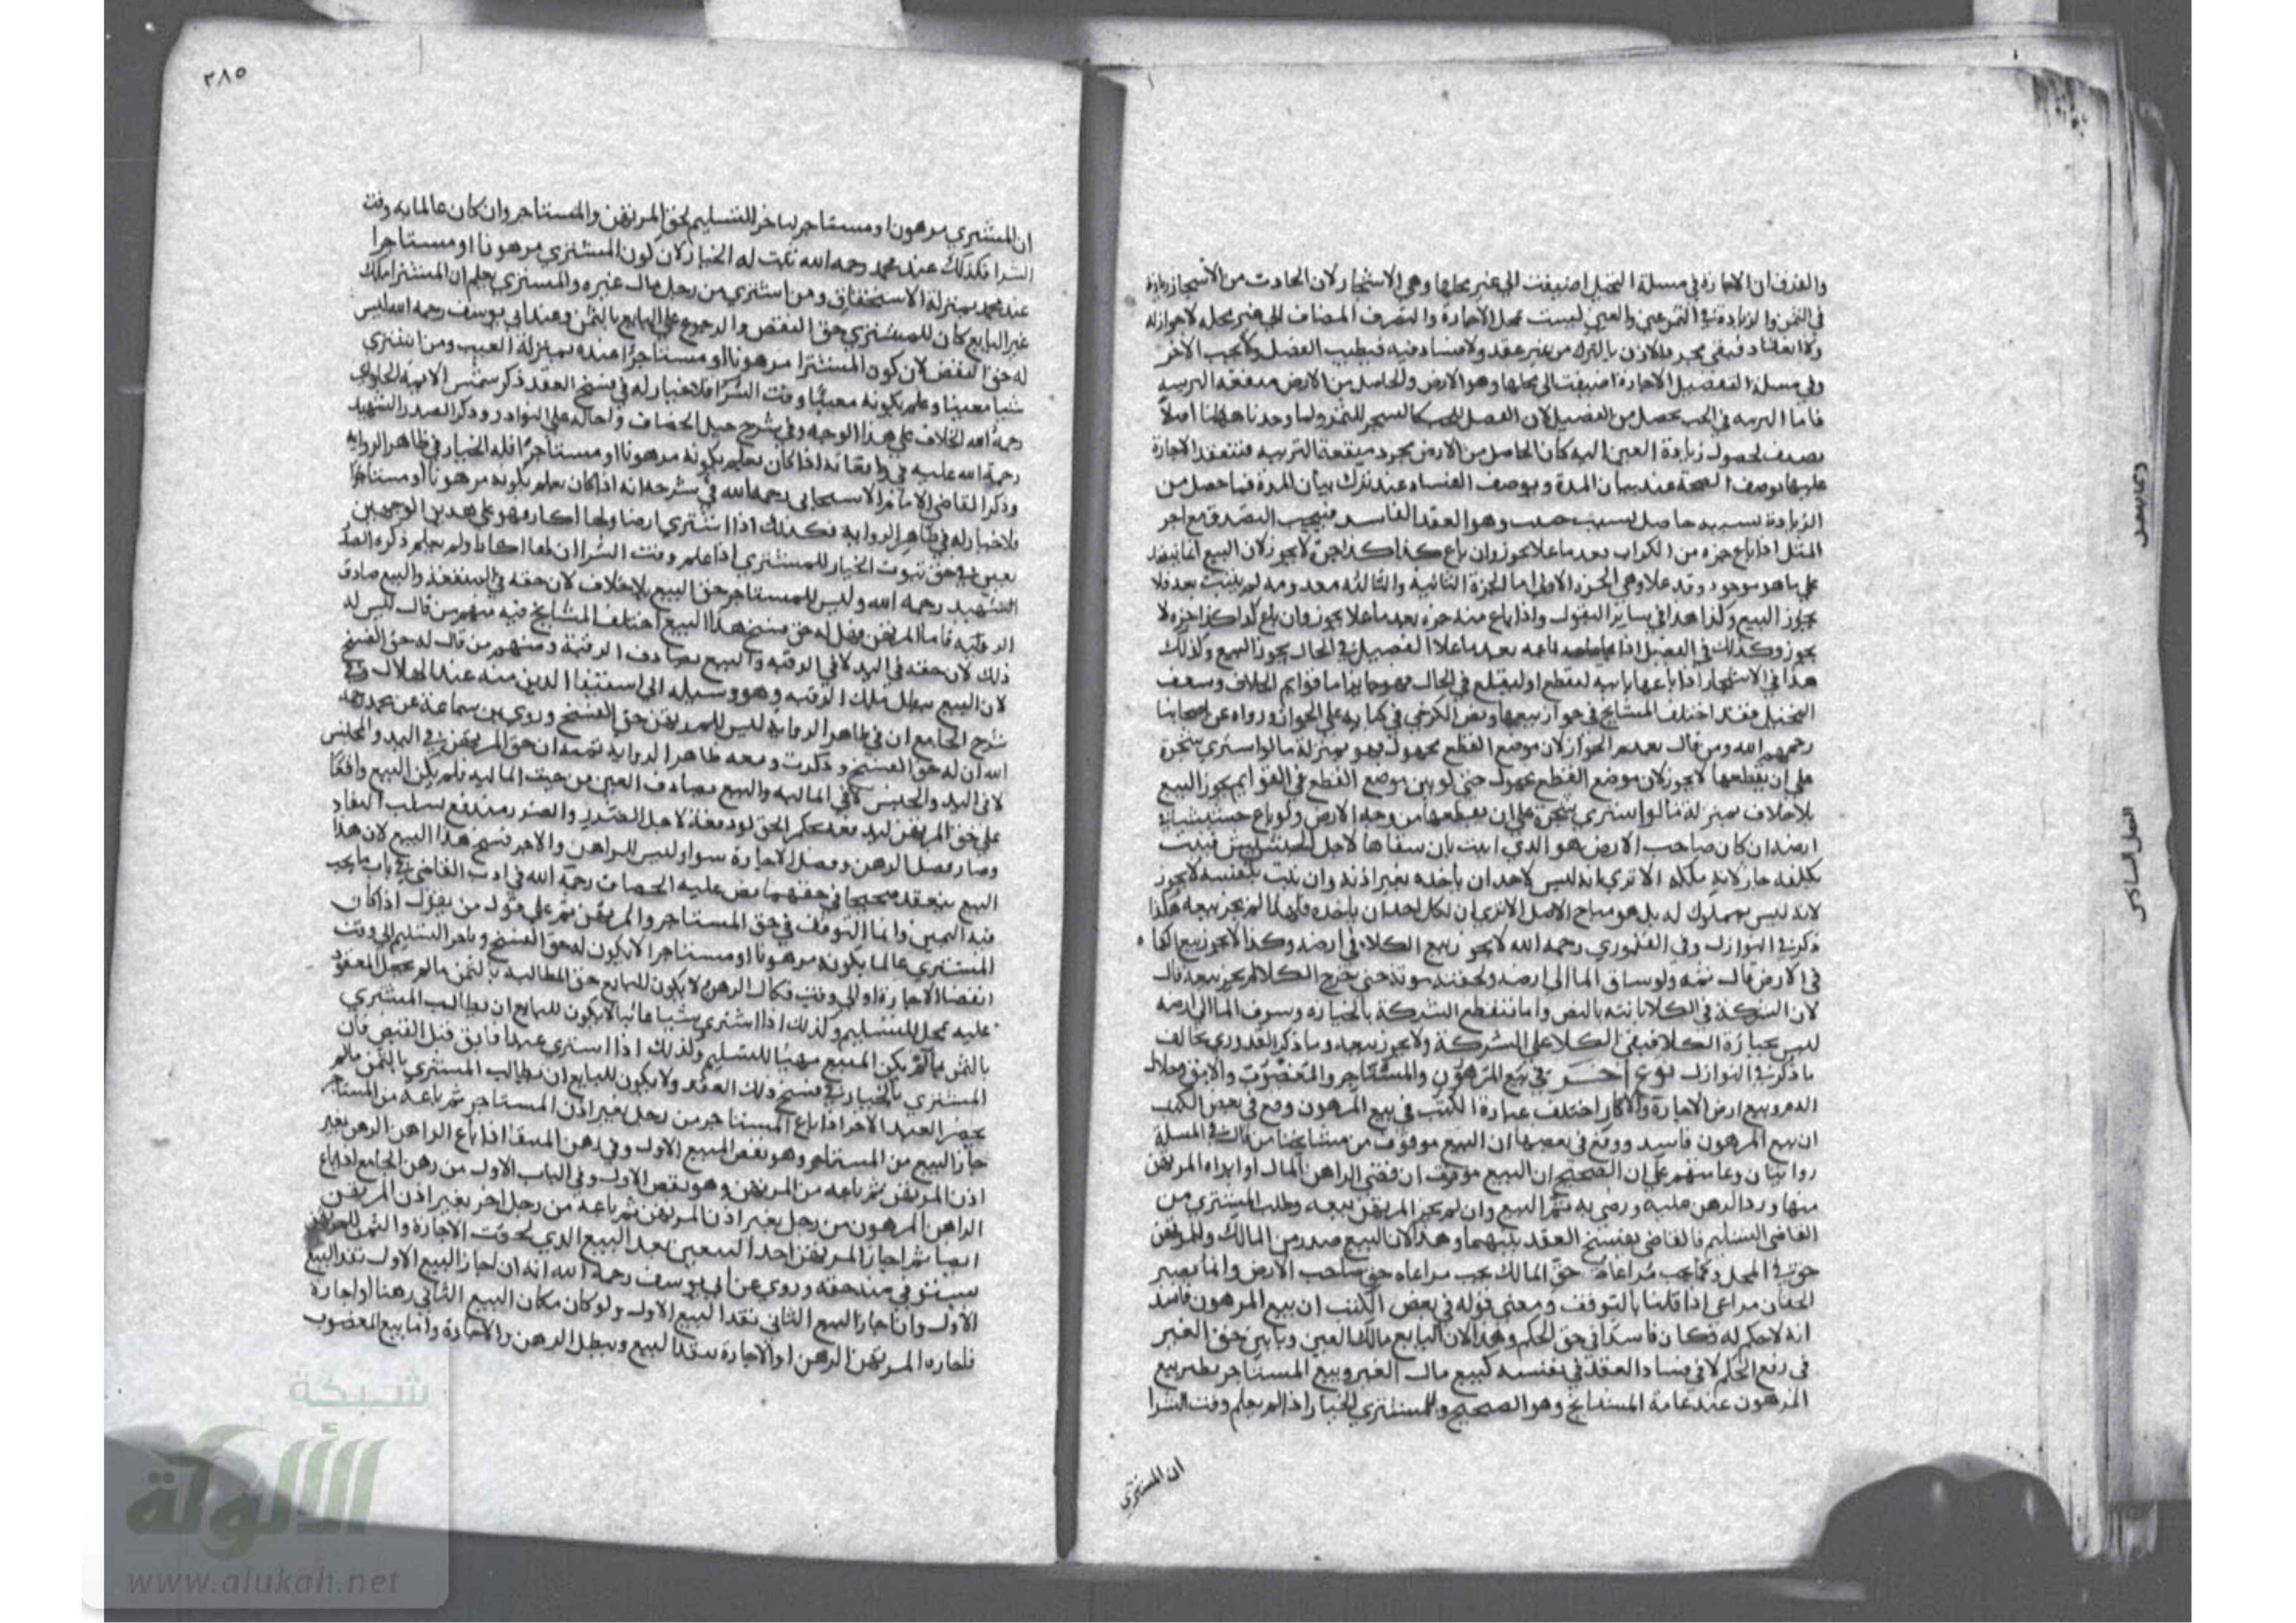 والفرق ان الاجارة في مسلة النخيل اضيفت الي غير محلها وهي الاشجار لان الحادث من الاشجار زيادة
في الثمن والزيادة في الثمن عين والعين ليست محل الاجارة والتصرف المضاف الي غير محله لا جواز له
ولا انعقاد فبقي مجرد الاذن بالترك من غير عقد ولا فساد فيه فيطيب الفضل ولا يجب الاجر
وفي مسلة الفصيل الاجارة اضيفت الي محلها وهو الارض والحاصل من الارض منفعة التربيه
فاما التربيه في الحب يحصل من الفصيل لان الفصل للحب كالشجر للثمر ولما وجدنا ههنا اصلا
يصرف لحصول زيادة العين اليه كان الحاصل من الارض مجرد منفعة التربيه فتنعقد الاجارة
عليها بوصف الصحة عند بيان المدة وبوصف الفساد عند ترك بيان المدة فما حصل من
الزيادة بسببه حاصل بسبب خبيث وهو العقد الفاسد فيجب التصدق مع اجر
المثل اذا باع جزه من الكراث بعد ما علا يجوز وان باع كذا كذا جزة لا يجوز لان البيع انما ينعقد
علي ما هو موجود وقد علا وهي الجزة الاولي اما الجزة الثانية والثالثه معدومه لم ينبت بعد فلا
يجوز البيع وكذا هذا في ساير البقول واذا باع منه جزه بعد ما علا يجوز وان باع كذا كذا جزه لا
يجوز وكذلك في الفصيل اذا باعه بعد ما علا الفصيل في الحال يجوز البيع وكذلك
هذا في الاشجار اذا باعها بايبه ليقطع او ليقلع في الحال فهو جايز اما قوايم الخلاف وسعف
النخيل فقد اختلف المشايخ في جواز بيعها ونص الكرخي في كتابه علي الجواز ورواه عن اصحابنا
رحمهم الله ومن قال بعدم الجواز لان موضع القطع مجهول فهو بمنزلة ما لو اشتري شجرة
علي ان يقطعها لا يجوز لان موضع القطع مجهول حتي لو بين موضع القطع في القوايم يجوز البيع
بلا خلاف بمنزلة ما لو اشتري شجرة علي ان يقطعها من وجه الارض ولو باع حشيشا في
ارضه ان كان صاحب الارض هو الذي انبت بان سقاها لاجل الحشيش فنبت
بكلفه جاز لانه ملكه الا تري انه ليس لاحد ان ياخذه بغير اذنه وان نبت بنفسه لا يجوز
لانه ليس بمملوك له بل هو مباح الاصل الا تري ان لكل احد ان ياخذه فلهذا لم يجز بيعه هكذا
ذكر في النوازل وفي القدوري رحمه الله لا يجوز بيع الكلاء في ارضه وكذا لا يجوز بيع الكماه
في الارض قال ثمه ولو ساق الما الي ارضه ولحقته موته حتي خرج الكلا لم يجز بيعه قال
لان الشركة في الكلا ثابته بالنص وانما تنقطع الشركة بالحيازه وسوق الما الي ارضه
ليس بحيازة الكلا فبقي الكلا علي الشركة ولا يجوز بيعه وما ذكر القدوري يخالف
ما ذكر في النوازل نوع اخر في بيع المرهون والمستاجر والمغصوب والابق وحلال
الدم وبيع ارض الاجارة والاكار اختلف عبارة الكتب في بيع المرهون وقع في بعض الكتب
ان بيع المرهون فاسد ووقع في بعضها ان البيع موقوف من مشايخنا من قال في المسلة
روايتان وعامتهم علي ان الصحيح ان البيع موقوف ان قضي الراهن المال او ابراه المرتهن
منها ورد الرهن عليه ورضي به تم البيع وان لم يجز المرتهن بيعه وطلب المشتري من
القاضي التسليم فالقاضي يفسخ العقد بينهما وهذا لان البيع صدر من المالك وللمرتهن
حق في المحل وكما يجب مراعاة حق المالك يجب مراعاه حق صاحب الارض وانما يصير
الحقان مراعي اذا قلنا بالتوقف ومعني قوله في بعض الكتب ان بيع المرهون فاسد
انه لا حكم له فكان فاسدا في حق الحكم وهذا لان البايع مالك العين وتاثير حق الغير
في رفع الحكم لا في فساد العقد في نفسه كبيع مال الغير وبيع المستاجر نظير بيع
المرهون عند عامة المشايخ وهو الصحيح وللمشتري الخيار اذا لم يعلم وقت الشرا
ان المشتري
٢٨٥
ان المشتري مرهون او مستاجر لتاخر التسليم لحق المرتهن والمستاجر وان كان عالما به وقت
الشرا فكذلك عند محمد رحمه الله ثبت له الخيار لان كون المشتري مرهونا او مستاجرا
عند محمد بمنزلة الاستحقاق ومن اشتري من رجل مال غيره والمشتري يعلم ان المشترا ملك
غير البايع كان للمشتري حق النقض والرجوع علي البايع بالثمن وعند ابي يوسف رحمه الله ليس
له حق النقض لان كون المشترا مرهونا او مستاجرا عنده بمنزلة العيب ومن اشتري
شيا معيبا وعلم بكونه معيبا وقت الشرا فلا خيار له في فسخ العقد ذكر شمس الايمه الحلواي
رحمه الله الخلاف علي هذا الوجه وفي شرح حيل الخصاف واحاله علي النوادر وذكر الصدر الشهيد
رحمة الله عليه في واقعاته اذا كان يعلم بكونه مرهونا او مستاجرا فله الخيار في ظاهر الروايه
وذكر القاضي الامام الاسبيجابي رحمه الله في شرحه انه اذا كان يعلم بكونه مرهونا او مستاجرا
فلا خيار له في ظاهر الروايه فكذلك اذا اشتري ارضا ولها اكار فهو علي هذين الوجهين
يعني في حق ثبوت الخيار للمشتري اذا علم وقت الشرا ان لها اكارا ولم يعلم ذكره الصدر
الشهيد رحمه الله وليس للمستاجر حق البيع بلا خلاف لان حقه في المنفعة والبيع صادف
الرقبه فاما المرتهن فهل له حق فسخ هذا البيع اختلف المشايخ فيه منهم من قال ليس له
ذلك لان حقه في اليد لا في الرقبه والبيع يصادف الرقبة ومنهم من قال له حق الفسخ
لان البيع يبطل ملك الرقبه وهو وسيله الي استيفا الدين منه عند الهلاك وفي
شرح الجامع ان في ظاهر الروايه ليس للمرتهن حق الفسخ وروي بن سماعة عن محمد رحمه
الله ان له حق الفسخ وذكرت وجه ظاهر الروايه ثمه ان حق المرتهن في اليد والحبس
لا في اليد والحبس لا في الماليه والبيع يصادف العين من حيث الماليه فلم يكن البيع واقعا
علي حق المرتهن ليد بعد حكم الحق لو دفعة لاجل الضرر والضرر مندفع بسلب النفاذ
وصار فصل الرهن وفصل الاجارة سواء وليس للراهن والاجر فسخ هذا البيع لان هذا
البيع ينعقد صحيحا في حقهما نص عليه الخصاف رحمه الله في ادب القاضي في باب ما يجب
فيه اليمين وانما التوقف في حق المستاجر والمرتهن ثم علي قول من يقول اذا كان
المشتري عالما بكونه مرهونا او مستاجرا لا يكون له حق الفسخ وتاخر التسليم الي وقت
انقضا الاجارة او الي وقت فكاك الرهن لا يكون للبايع حق المطالبه بالثمن ما لم يجعل المعقود
عليه محل للتسليم وكذلك اذا اشتري شيا غائبا لا يكون للبايع ان يطالب المشتري
بالثمن ما لم يكن المبيع مهيا للتسليم وكذلك اذا اشتري عبدا فابق قبل القبض فان
المشتري بالخيار في فسخ ذلك العقد ولا يكون للبايع ان يطالب المشتري بالثمن ما لم
يحضر العبد الاخر اذا باع المستاجر من رجل بغير اذن المستاجر ثم باعه من المستاجر
جاز البيع من المستاجر وهو نقض المبيع الاول وفي رهن المنتقا اذا باع الراهن الرهن بغير
اذن المرتهن ثم باعه من المرتهن وهو نقض الاول وفي الباب الاول من رهن الجامع اذا باع
الراهن المرهون من رجل بغير اذن المرتهن ثم باعه من رجل اخر بغير اذن المرتهن
ايضا ثم اجاز المرتهن احد البيعين نفذ البيع الذي لحقت الاجازة والثمن للمرتهن
يستوفي منه حقه وروي عن ابي يوسف رحمه الله انه ان اجاز البيع الاول نفذ البيع
الاول وان اجاز البيع الثاني نفذ البيع الاول ولو كان مكان البيع الثاني رهنا او اجارة
فاجازه المرتهن الرهن او الاجارة ينفذ البيع ويبطل الرهن والاجارة واما بيع المغصوب
شبكة
الألوكة
www.alukah.net